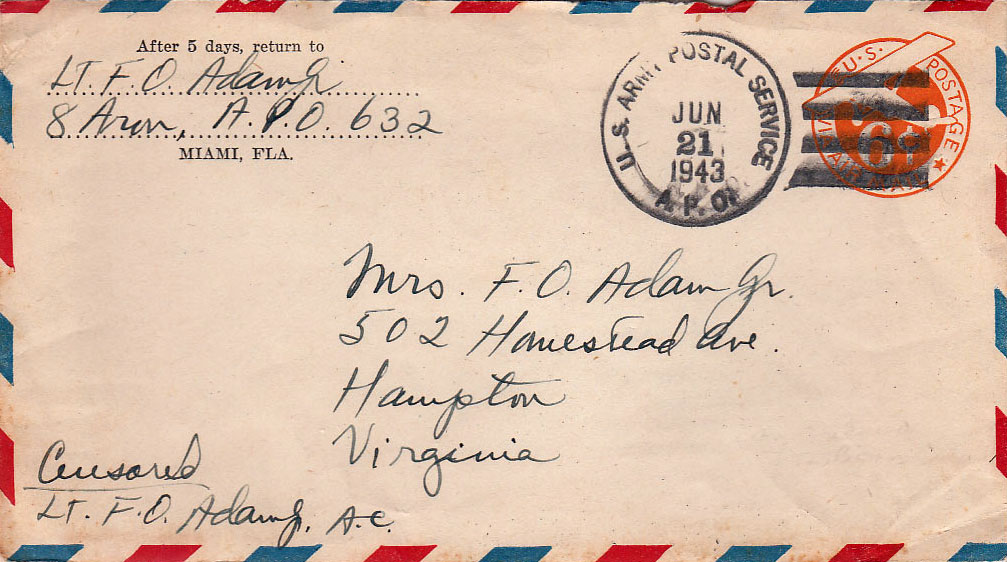 After 5 days, return to
Lt. F. O. Adam Jr
8 Aron, A.P.O. 632
MIAMI, FLA.
U.S. ARMY POSTAL SERVICE
JUN
21
1943
A. P. O.
U.S. POSTAGE
6¢
AIR MAIL
Mrs. F. O. Adam Jr.
502 Homestead Ave.
Hampton
Virginia
Censored
Lt. F. O. Adam Jr. A.C.